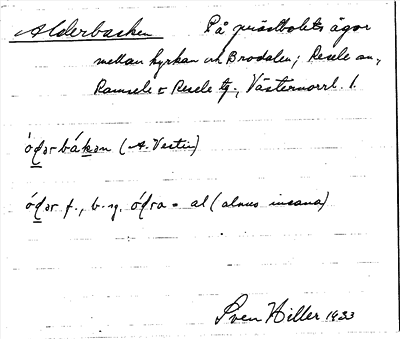 Alderbacken På prästbolets ägor
mellan kyrkan och Brodalen; Resele sn,
Ramsele o Resele tg., Västernorrl. l.
ódərbákən (A. Vestin)
ódər f., b. sg. ódra = al (alnus incana)
Sven Hiller 1933